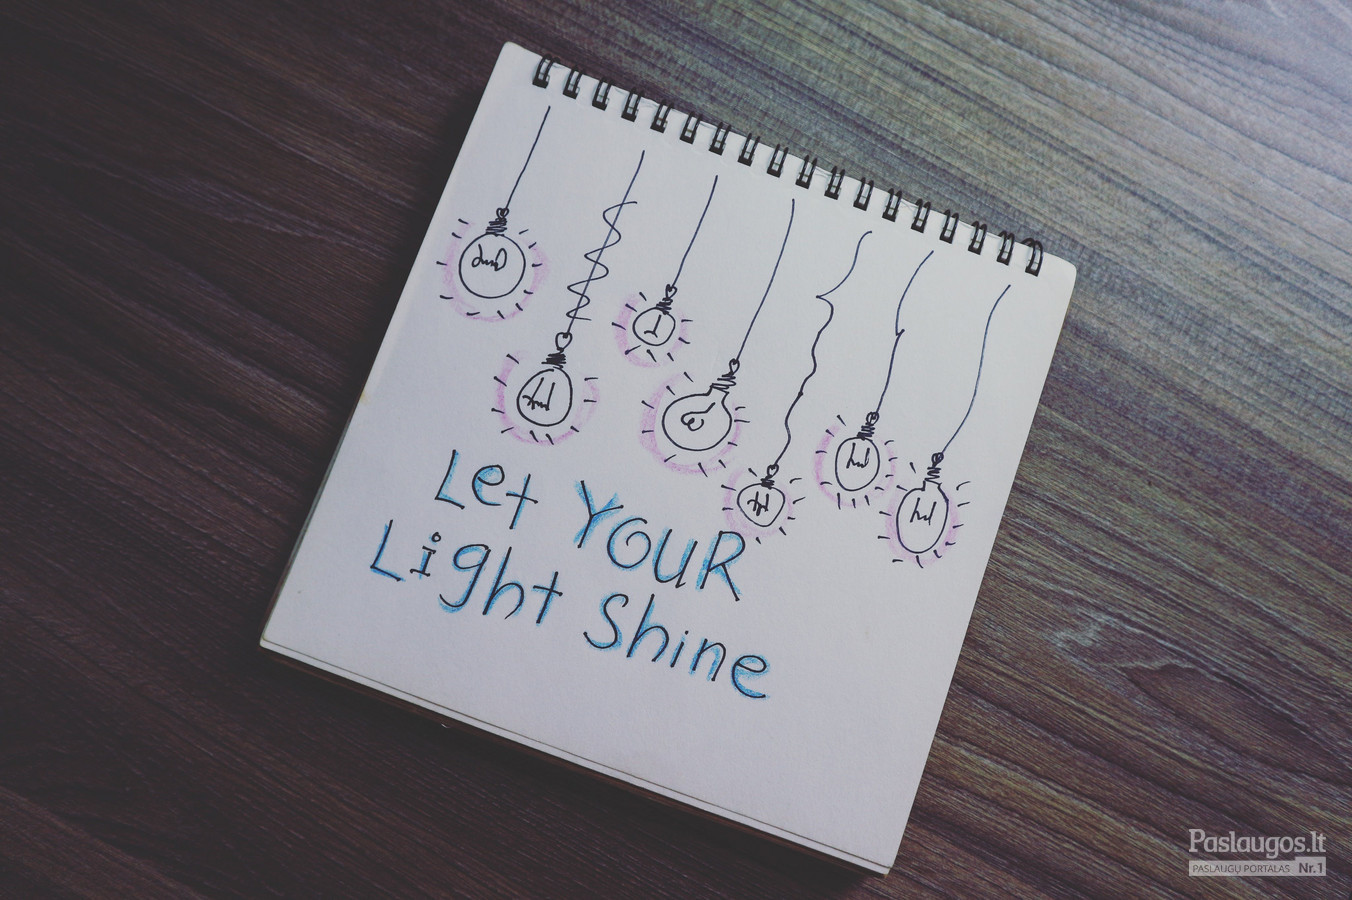 Let YOUR
Light Shine
Paslaugos.lt
PASLAUGŲ PORTALAS Nr.1